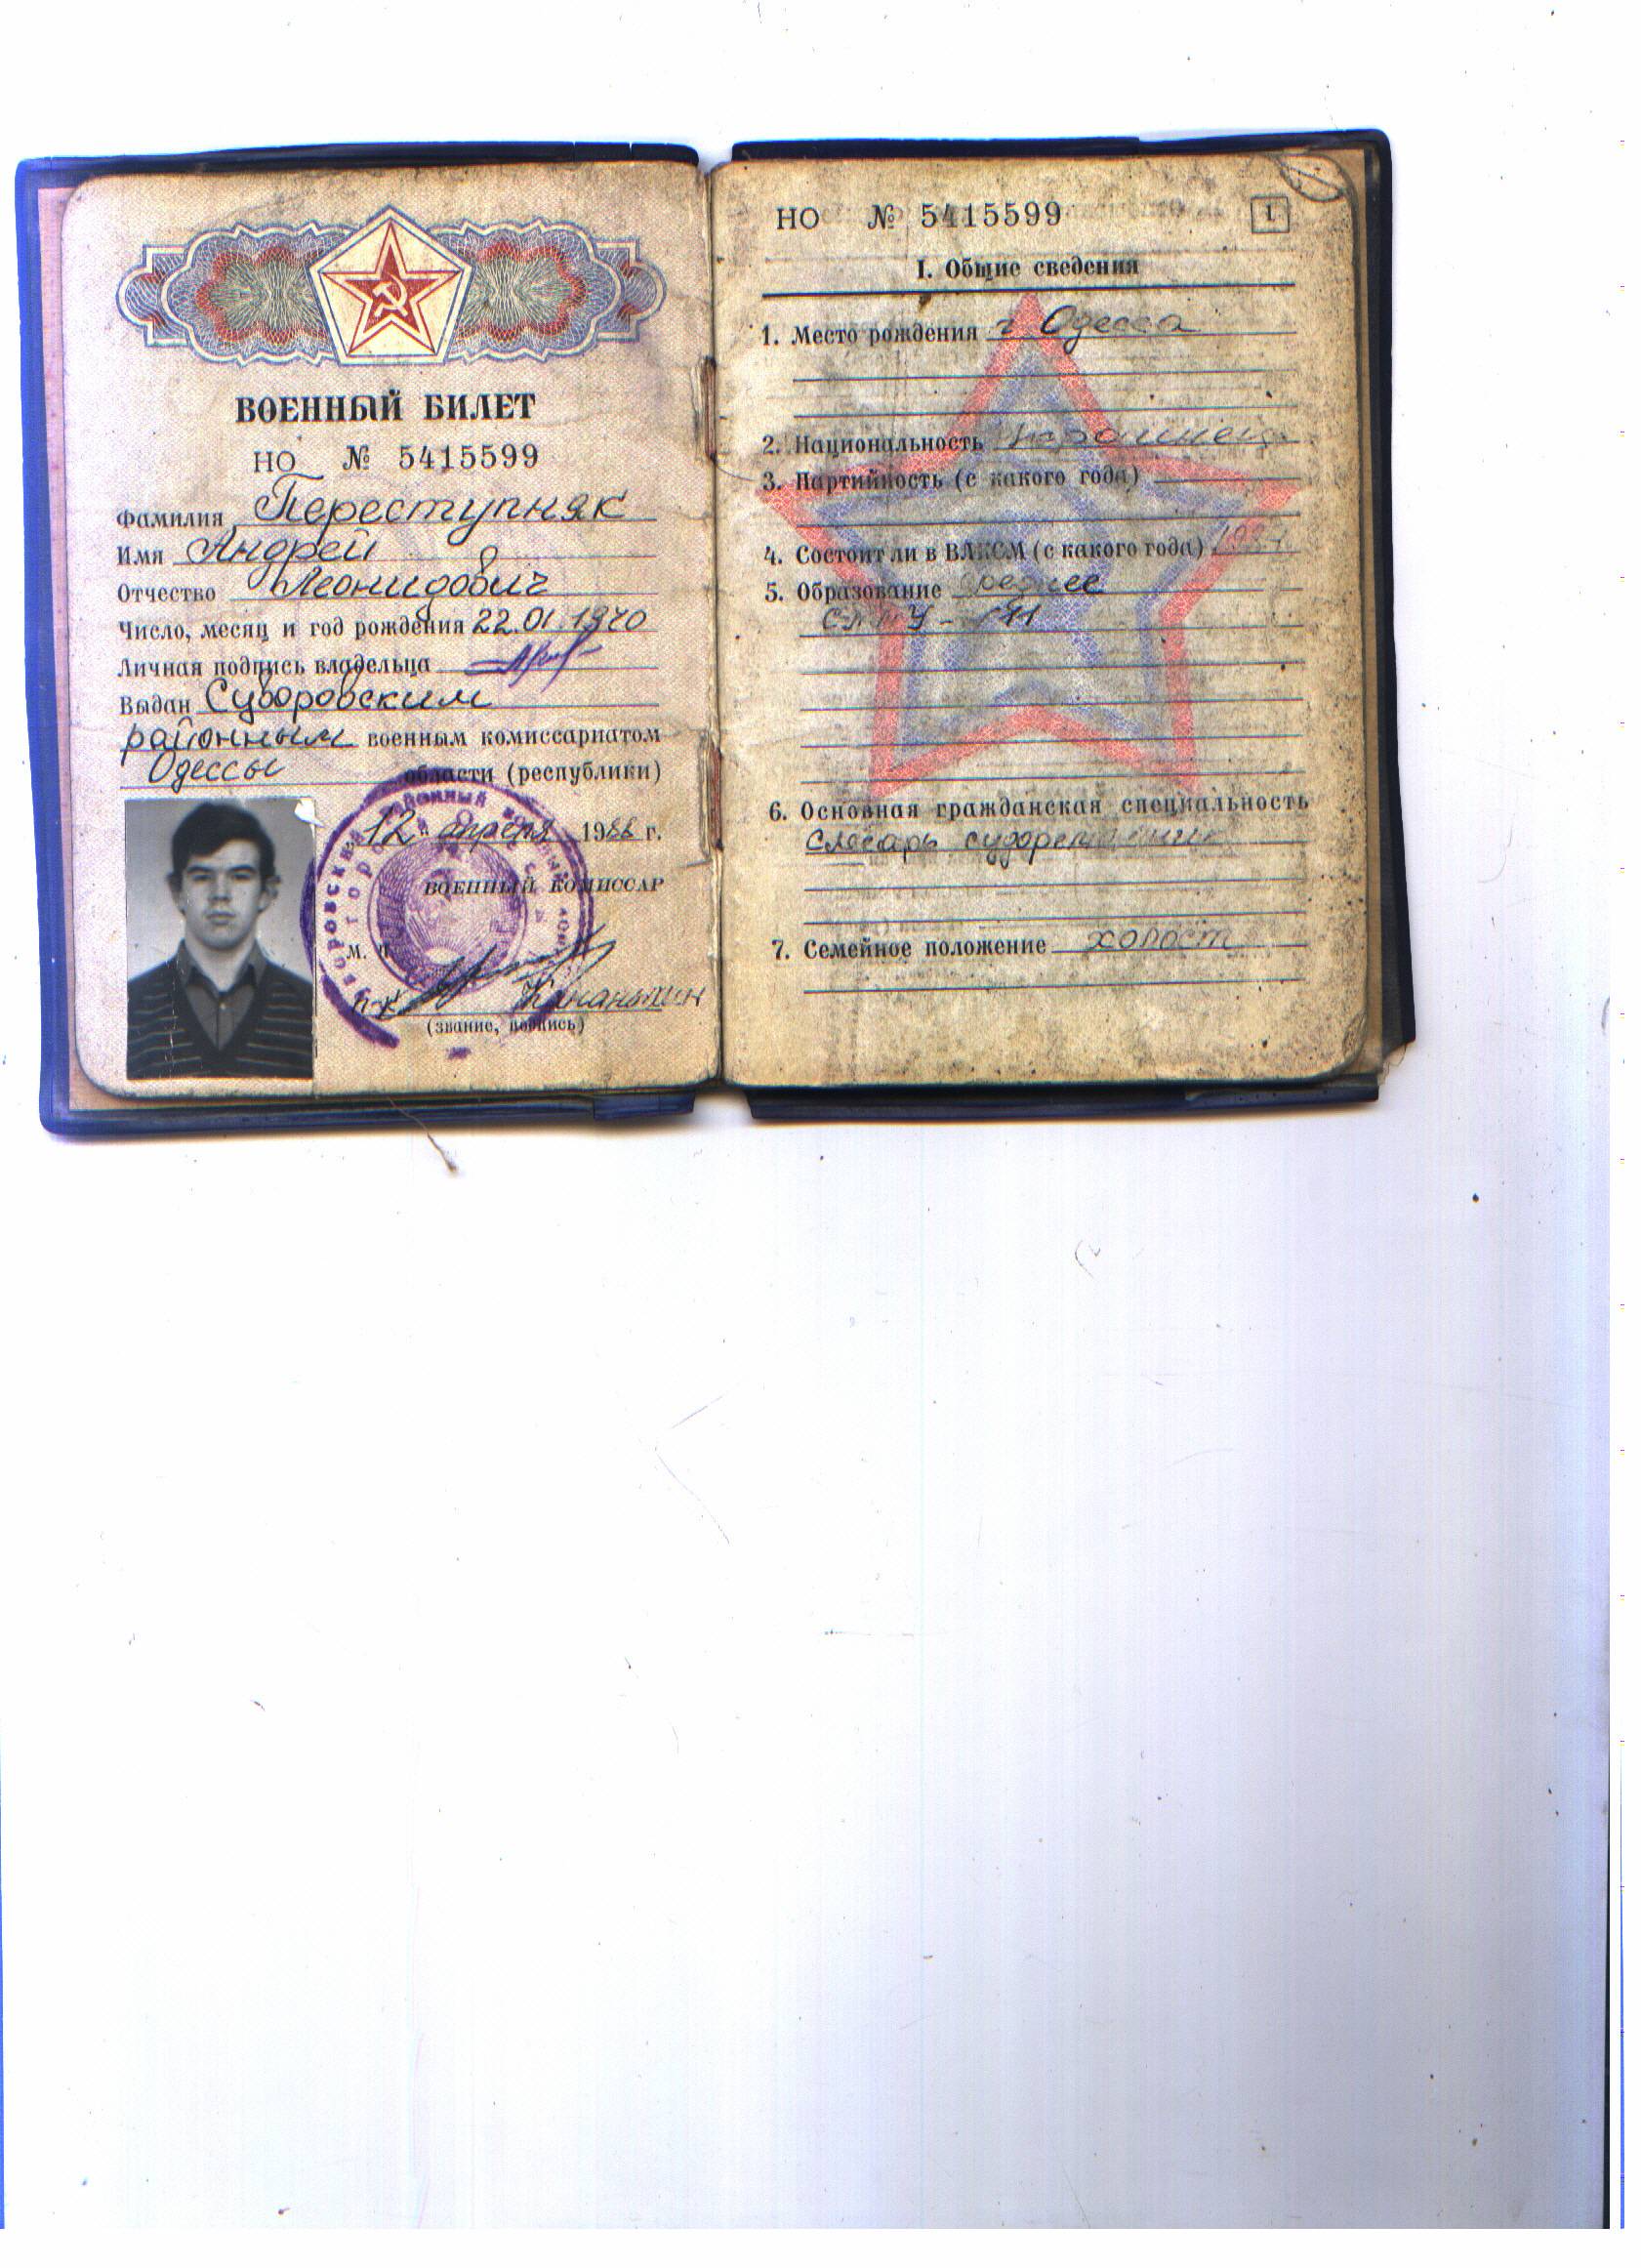 ВОЕННЫЙ БИЛЕТ
НО № 5415599
Фамилия Переступняк
Имя Андрей
Отчество Леонидович
Число, месяц и год рождения 22.01.1970
Личная подпись владельца
Выдан Суворовским
районным военным комиссариатом
Одессы области (республики)
12 апреля 1988 г.
ВОЕННЫЙ КОМИССАР
М. П.
п-к
(звание, подпись)
НО № 5415599
1
I. Общие сведения
1. Место рождения г. Одесса
2. Национальность украинец
3. Партийность (с какого года)
4. Состоит ли в ВЛКСМ (с какого года)
5. Образование среднее
6. Основная гражданская специальность
слесарь
7. Семейное положение холост